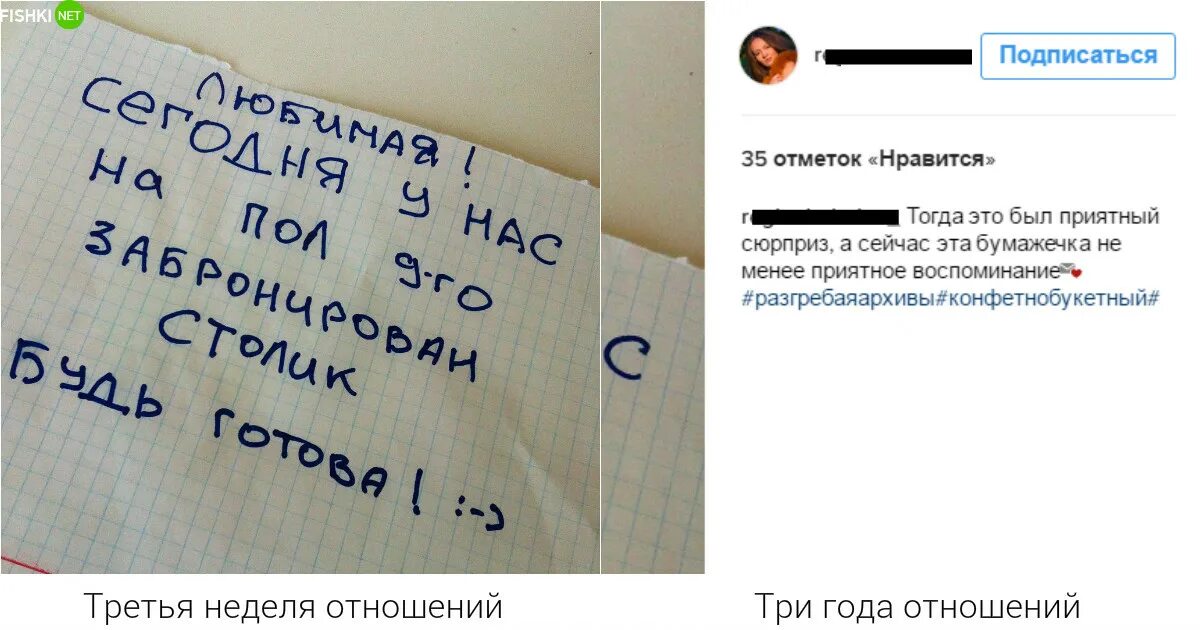 FISHKI NET
ЛЮБИМАЯ!
СЕГОДНЯ У НАС
НА ПОЛ 9-ГО
ЗАБРОНИРОВАН
СТОЛИК
БУДЬ ГОТОВА! :-)
С
Подписаться
35 отметок «Нравится»
Тогда это был приятный
сюрприз, а сейчас эта бумажечка не
менее приятное воспоминание
#разгребаяархивы#конфетнобукетный#
Третья неделя отношений
Три года отношений